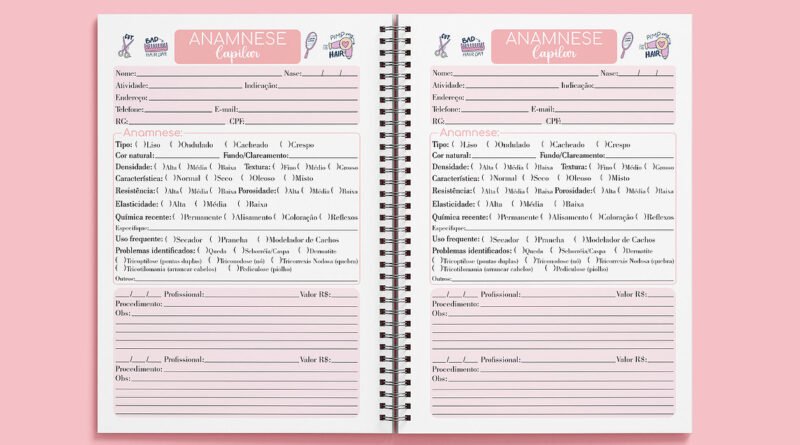 BAD HAIR DAY
ANAMNESE
Capilar
PIMP MY HAIR
Nome: Nasc: / /
Atividade: Indicação:
Endereço:
Telefone: E-mail:
RG: CPF:
Anamnese:
Tipo: ( )Liso ( )Ondulado ( )Cacheado ( )Crespo
Cor natural: Fundo/Clareamento:
Densidade: ( )Alta ( )Média ( )Baixa Textura: ( )Fino ( )Médio ( )Grosso
Característica: ( )Normal ( )Seco ( )Oleoso ( )Misto
Resistência: ( )Alta ( )Média ( )Baixa Porosidade: ( )Alta ( )Média ( )Baixa
Elasticidade: ( )Alta ( )Média ( )Baixa
Química recente: ( )Permanente ( )Alisamento ( )Coloração ( )Reflexos
Especifique:
Uso frequente: ( )Secador ( )Prancha ( )Modelador de Cachos
Problemas identificados: ( )Queda ( )Seborréia/Caspa ( )Dermatite
( )Tricoptilose (pontas duplas) ( )Triconodose (nó) ( )Tricorrexis Nodosa (quebra)
( )Tricotilomania (arrancar cabelos) ( )Pediculose (piolho)
Outros:
/ / Profissional: Valor R$:
Procedimento:
Obs:
/ / Profissional: Valor R$:
Procedimento:
Obs:
BAD HAIR DAY
ANAMNESE
Capilar
PIMP MY HAIR
Nome: Nasc: / /
Atividade: Indicação:
Endereço:
Telefone: E-mail:
RG: CPF:
Anamnese:
Tipo: ( )Liso ( )Ondulado ( )Cacheado ( )Crespo
Cor natural: Fundo/Clareamento:
Densidade: ( )Alta ( )Média ( )Baixa Textura: ( )Fino ( )Médio ( )Grosso
Característica: ( )Normal ( )Seco ( )Oleoso ( )Misto
Resistência: ( )Alta ( )Média ( )Baixa Porosidade: ( )Alta ( )Média ( )Baixa
Elasticidade: ( )Alta ( )Média ( )Baixa
Química recente: ( )Permanente ( )Alisamento ( )Coloração ( )Reflexos
Especifique:
Uso frequente: ( )Secador ( )Prancha ( )Modelador de Cachos
Problemas identificados: ( )Queda ( )Seborréia/Caspa ( )Dermatite
( )Tricoptilose (pontas duplas) ( )Triconodose (nó) ( )Tricorrexis Nodosa (quebra)
( )Tricotilomania (arrancar cabelos) ( )Pediculose (piolho)
Outros:
/ / Profissional: Valor R$:
Procedimento:
Obs:
/ / Profissional: Valor R$:
Procedimento:
Obs: